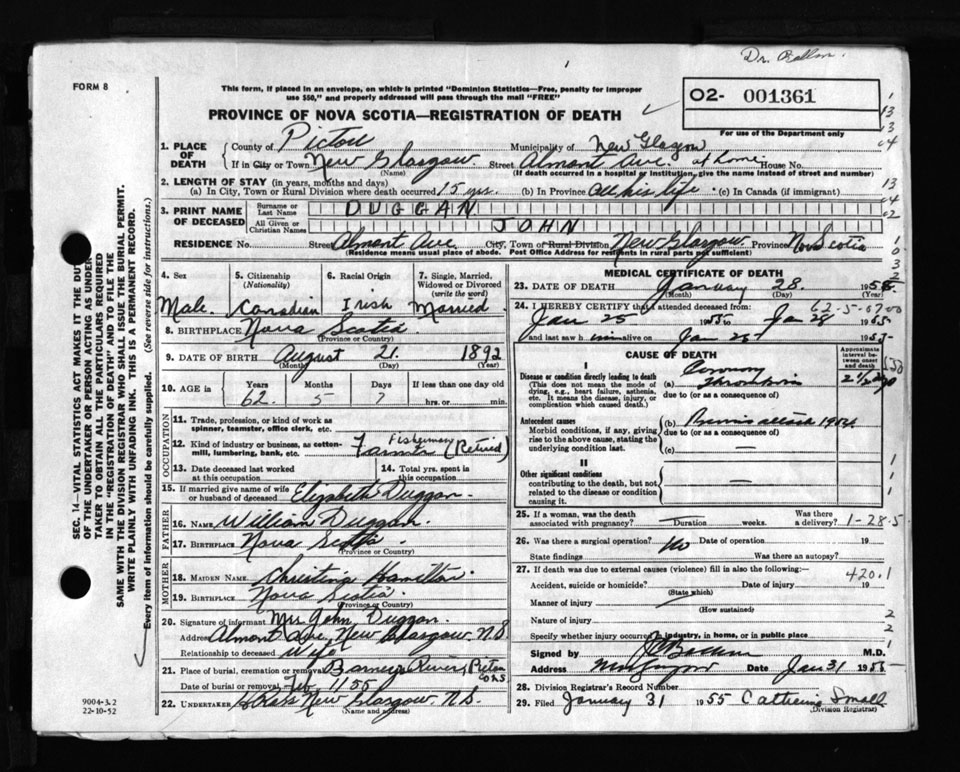 Dr.
FORM 8
This form, if placed in an envelope, on which is printed "Dominion Statistics—Free, penalty for improper
use $50," and properly addressed will pass through the mail "FREE"
PROVINCE OF NOVA SCOTIA—REGISTRATION OF DEATH
O2- 001361
For use of the Department only
1. PLACE OF DEATH
County of Pictou Municipality of New Glasgow
If in City or Town New Glasgow Street Almont Ave. at home House No.
(Name) (If death occurred in a hospital or institution, give the name instead of street and number)
2. LENGTH OF STAY (in years, months and days)
(a) In City, Town or Rural Division where death occurred 15 yrs. (b) In Province All his life (c) In Canada (if immigrant)
3. PRINT NAME OF DECEASED
Surname or Last Name DUGGAN
All Given or Christian Names JOHN
RESIDENCE No. Street Almont Ave City, Town or Rural Division New Glasgow Province N. Scotia
(Residence means usual place of abode. Post Office Address for residents in rural parts not sufficient)
4. Sex
Male.
5. Citizenship
(Nationality)
Canadian
6. Racial Origin
Irish
7. Single, Married, Widowed or Divorced
(write the word)
Married
8. BIRTHPLACE Nova Scotia
(Province or Country)
9. DATE OF BIRTH August 21. 1892
(Month) (Day) (Year)
10. AGE in
Years Months Days If less than one day old
62. 5 7 hrs. or min.
OCCUPATION
11. Trade, profession, or kind of work as
spinner, teamster, office clerk, etc.
12. Kind of industry or business, as cotton-
mill, lumbering, bank, etc.
Fisherman
Farmer (Retired)
13. Date deceased last worked
at this occupation
14. Total yrs. spent in
this occupation
15. If married give name of wife
or husband of deceased Elizabeth Duggan.
FATHER
16. NAME William Duggan.
17. BIRTHPLACE Nova Scotia.
(Province or Country)
MOTHER
18. MAIDEN NAME Christina Hamilton.
19. BIRTHPLACE Nova Scotia
(Province or Country)
20. Signature of informant Mrs. John Duggan.
Address Almont Ave, New Glasgow, N.S.
Relationship to deceased Wife
21. Place of burial, cremation or removal Barneys River, Pictou
Co NS
Date of burial or removal Feb 1 55
22. UNDERTAKER New Glasgow N.S.
(Name and address)
MEDICAL CERTIFICATE OF DEATH
23. DATE OF DEATH January 28. 1955
(Month) (Day) (Year)
24. I HEREBY CERTIFY that I attended deceased from:
62-5-07-00
Jan 25 1955 to Jan 28 1955
and last saw him alive on Jan 28 1955
CAUSE OF DEATH
Approximate interval between onset and death
I
Disease or condition directly leading to death
(This does not mean the mode of
dying, e.g., heart failure, asthenia,
etc. It means the disease, injury, or
complication which caused death.)
(a) Coronary
Thrombosis
due to (or as a consequence of)
Antecedent causes
Morbid conditions, if any, giving
rise to the above cause, stating the
underlying condition last.
(b) Previous attack 1954
due to (or as a consequence of)
(c) —
II
Other significant conditions
contributing to the death, but not
related to the disease or condition
causing it.
—
25. If a woman, was the death
associated with pregnancy? Duration weeks. Was there
a delivery?
1-28-5
26. Was there a surgical operation? No Date of operation 19
State findings Was there an autopsy?
27. If death was due to external causes (violence) fill in also the following:—
420.1
Accident, suicide or homicide? Date of injury 19
(State which)
Manner of injury
(How sustained)
Nature of injury
Specify whether injury occurred in industry, in home, or in public place
Signed by M.D.
Address New Glasgow Date Jan 31 1955
28. Division Registrar's Record Number
29. Filed January 31 1955 Catherine Small
(Division Registrar)
SEC. 14—VITAL STATISTICS ACT MAKES IT THE DUTY
OF THE UNDERTAKER OR PERSON ACTING AS UNDER-
TAKER TO OBTAIN ALL THE PARTICULARS REQUIRED
IN THE "REGISTRATION OF DEATH" AND TO FILE THE
SAME WITH THE DIVISION REGISTRAR WHO SHALL ISSUE THE BURIAL PERMIT.
WRITE PLAINLY WITH UNFADING INK. THIS IS A PERMANENT RECORD.
Every item of information should be carefully supplied. (See reverse side for instructions.)
9004-3.2
22-10-52